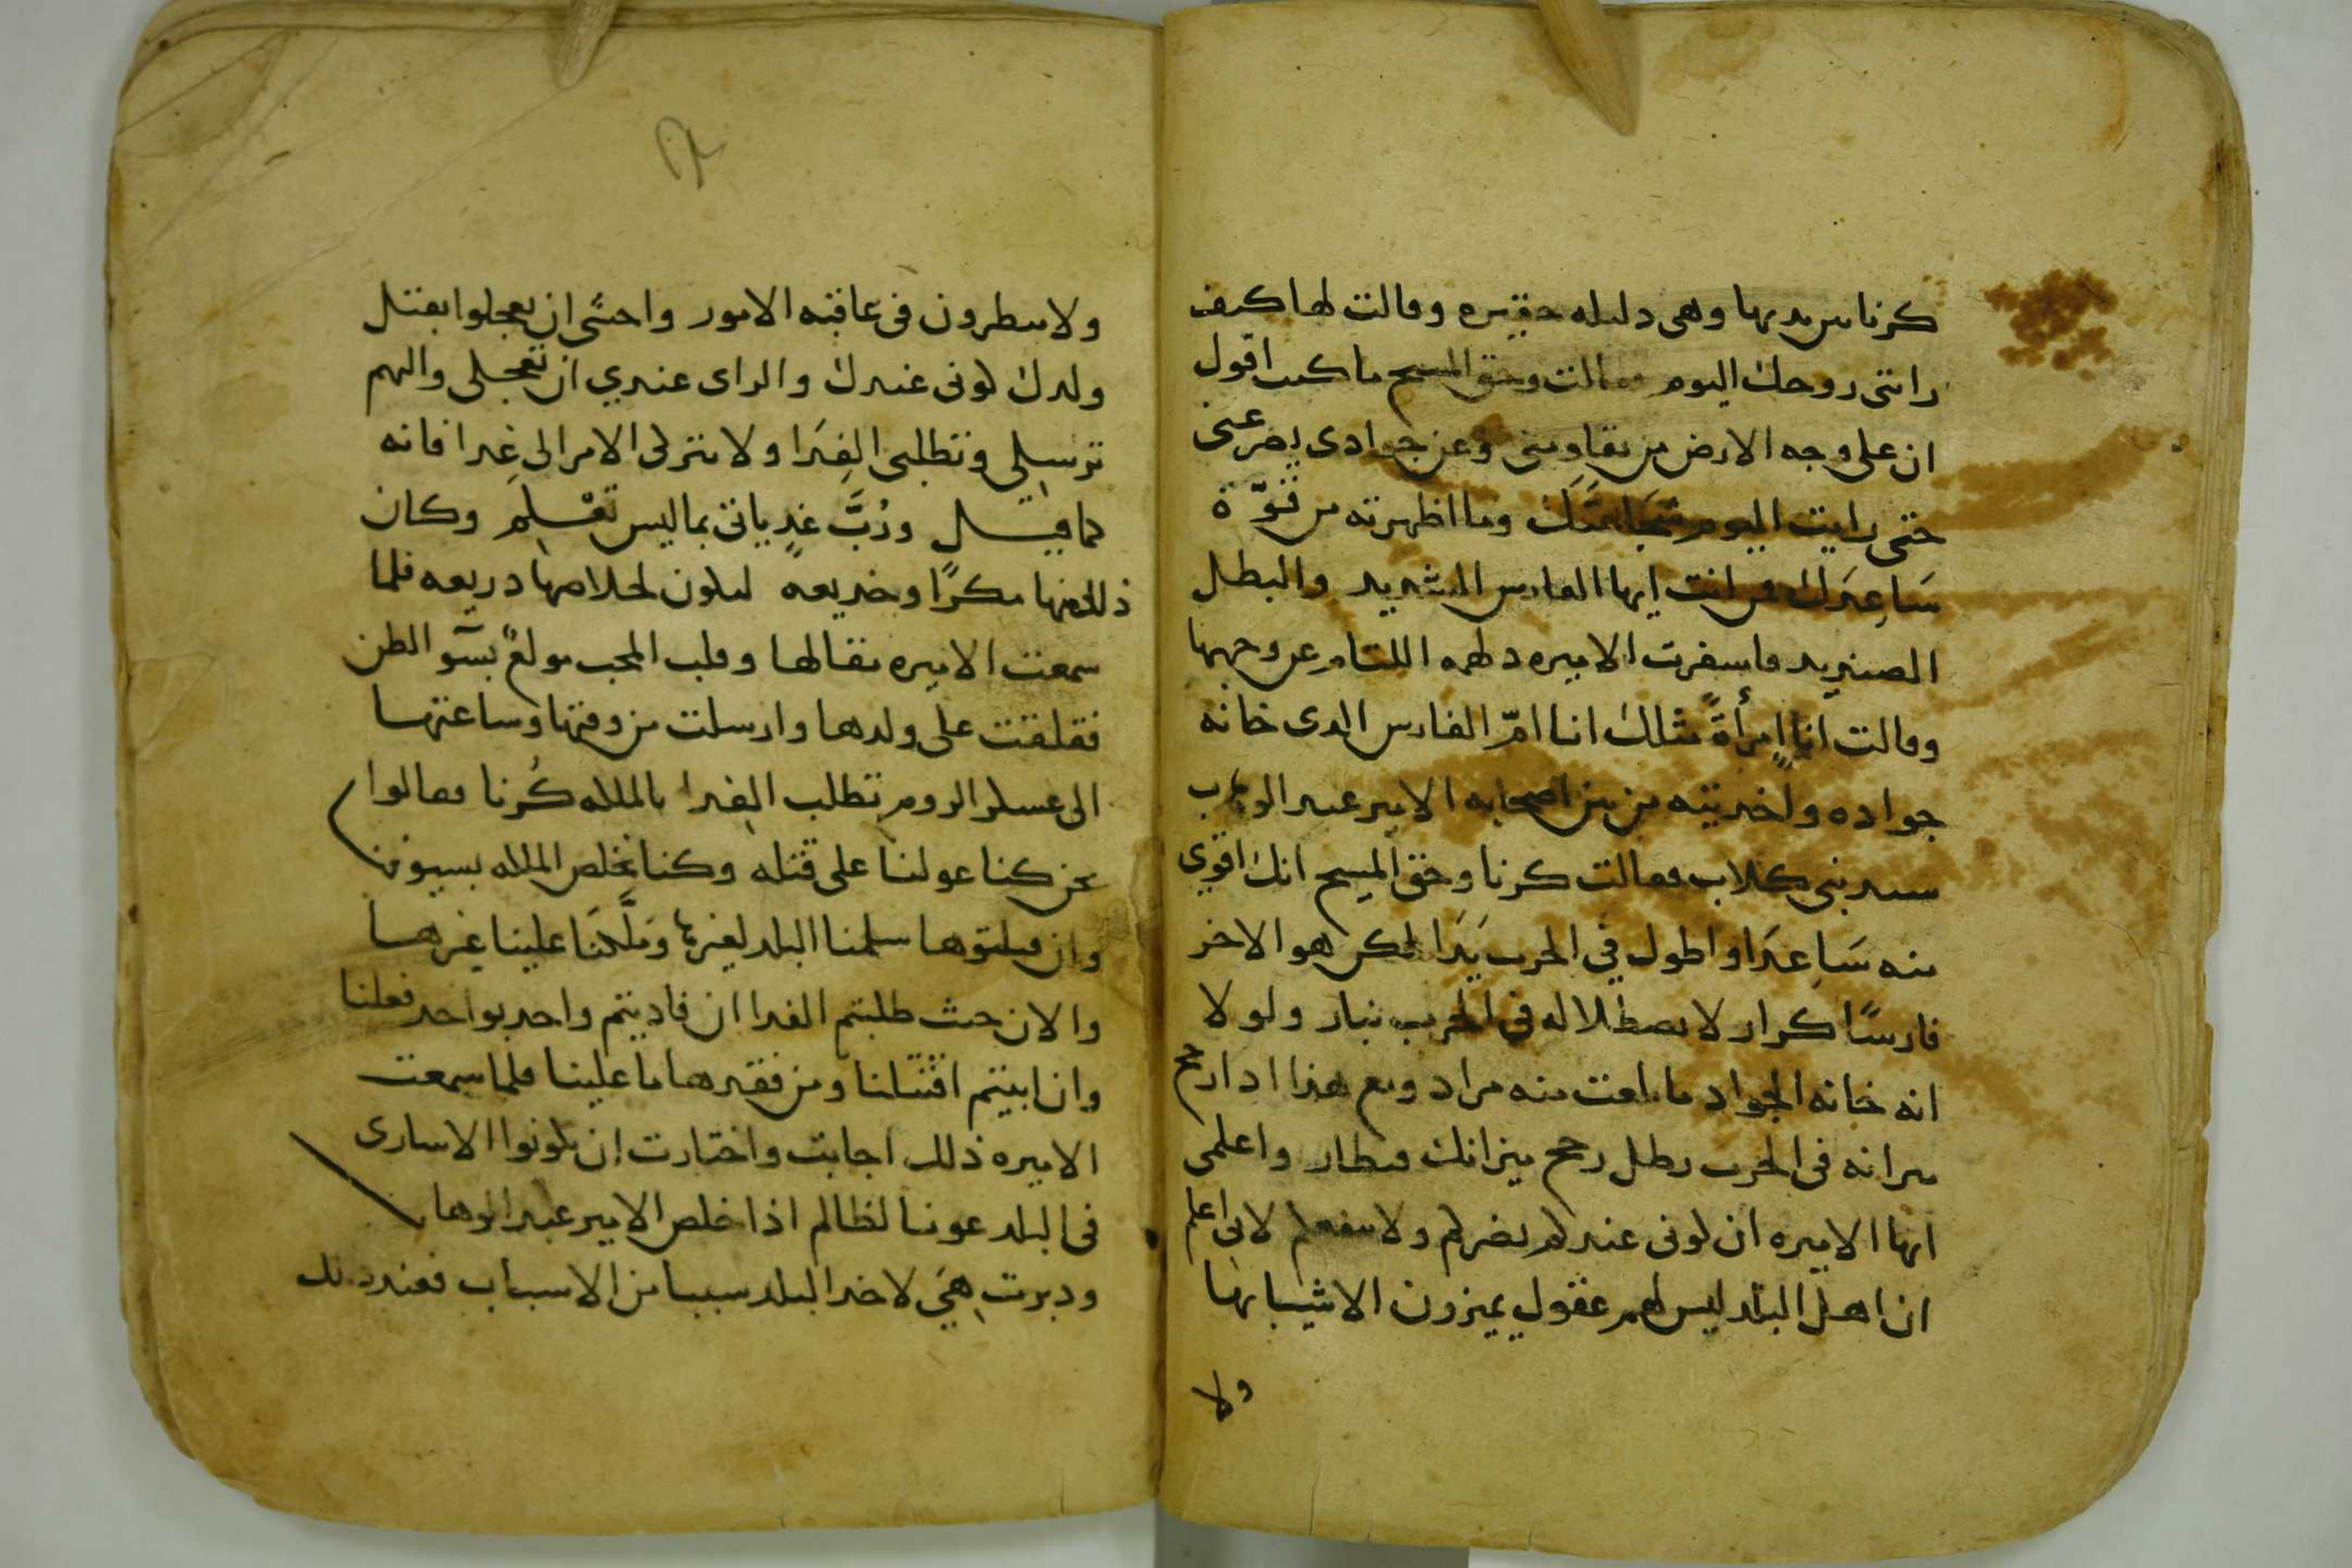 كرنا بين يديها وهى دليله حقيره وقالت لها كيف
رايتى روحك اليوم فقالت وحق المسيح ما كنت اقول
ان على وجه الارض من يقاومنى وعن جوادى
حتى رايت اليوم وما اظهرته من قوّة
سَاعِدَك فمن انت ايها الفارس الشديد والبطل
الصنديد فاسفرت الاميره دلهمه اللثام عن وجهها
وقالت انا إمرأةً مثلك انا امّ الفارس الدى خانه
جواده واخدتيه من بين اصحابه الامير عبد الوهاب
سيد بنى كلاب فقالت كرنا وحق المسيح انك اقوى
منه سَاعِدَا واطول في الحرب يَدَا لكن هو الاخر
فارسًا كرار لا يصطلا له فى الحرب بنار ولو لا
انه خانه الجواد ما بلغت منه مراد ومع هذا ادا رجح
ميزانه فى الحرب رطل رجح ميزانك قنطار واعلمى
ايها الاميره ان كونى عندكم يضركم ولا ينفعكم لانى اعلم
ان اهل البلد ليس لهم عقول يميزون الاشيا بها
ولا
ولا ينظرون فى عاقبه الامور واخشى ان يعجلوا بقتل
ولدك كونى عندك والراى عندي ان تعجلى واليهم
ترسلى وتطلبى الفِدَا ولا تتركى الامر الى غِدا فانه
كما قيل ورُبَّ غدٍ ياتى بما ليس تعْلم وكان
ذلك منها مكرًا وخديعه ليكون لخلاصها دريعه فلما
سمعت الاميره مقالها وقلب المحب مولعٌ بسَو الظن
فقلقت على ولدها وارسلت من وقتها وساعتها
الى عسكر الروم تطلب الفدا بالملكه كُرنا فقالوا
نحن كنا عولنا على قتله وكنا نخلص الملكه بسيوفنا
وان قتلتوها سلمنا البلد لغيرها ومَلَّكنَا علينا غيرها
والان حيث طلبتم الفدا ان فاديتم واحد بواحد فعلنا
وان ابيتم اقتتلنا ومن فقدها ما علينا فلما سمعت
الاميره ذلك اجابت واختارت ان يكونوا الاسارى
فى البلد عونا لظالم اذا خلص الامير عبد الوهاب
ودبرت هىَ لاخد البلد سببا من الاسباب فعند ذلك